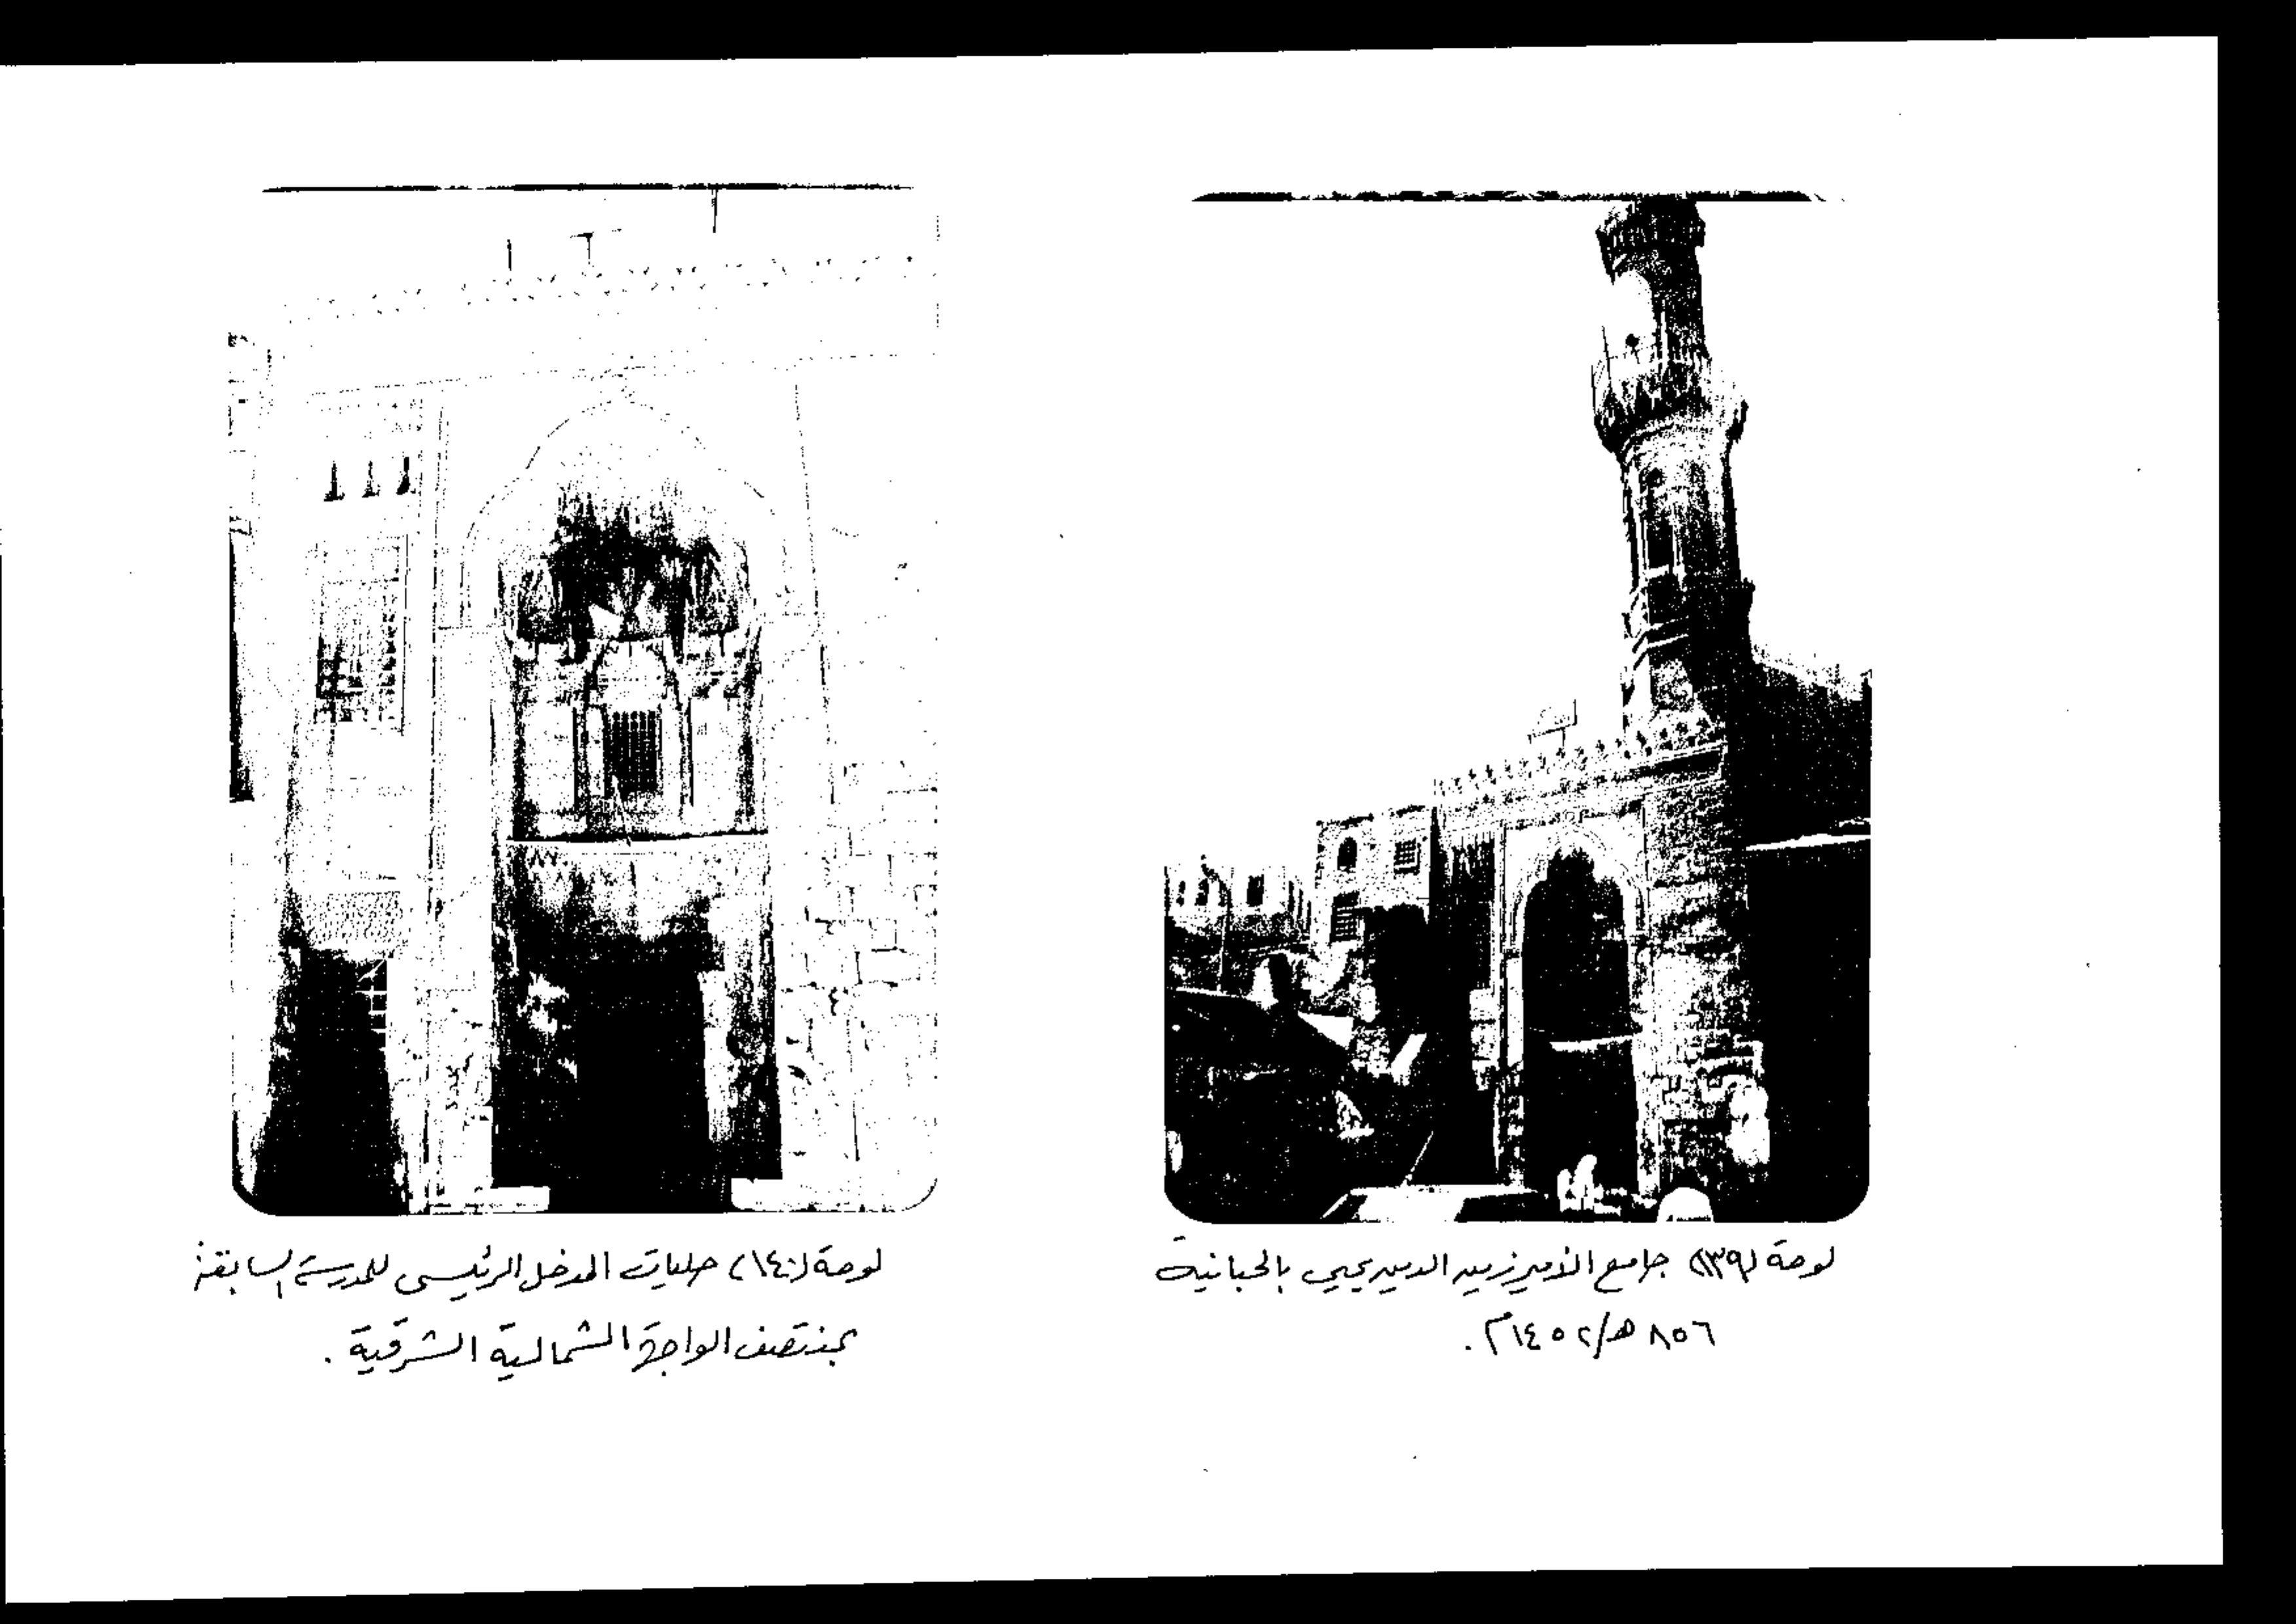 لوحة (١٣٩) جامع الأمير زين الدين يحيى بالحبانية
٨٥٦ هـ/١٤٥٢م.
لوحة (١٤٠) حليات المدخل الرئيسى للمدرسة السابقة
بمنتصف الواجهة الشمالية الشرقية .